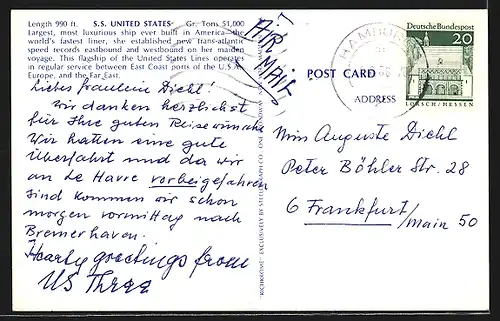 Length 990 ft. S.S. UNITED STATES Gr. Tons 51,000
Largest, most luxurious ship ever built in America the
world's fastest liner, she established new trans-atlantic
speed records eastbound and westbound on her maiden
voyage. This flagship of the United States Lines operates
in regular service between East Coast ports of the U.S.A.
Europe, and the Far East.
Liebes Fraulein Diehl!
Wir danken herzlichst
für Ihre guten Reisewünsche
Wir hatten eine gute
Überfahrt und da wir
an Le Havre vorbeigefahren
sind kommen wir schon
morgen vormittag nach
Bremerhaven.
Hearty greetings from
US Three
AIR
MAIL
"RICHROME" EXCLUSIVELY BY
POST CARD
ADDRESS
HAMBURG
Deutsche Bundespost
20
LORSCH/HESSEN
Miss Auguste Diehl
Peter Böhler Str. 28
6 Frankfurt/Main 50